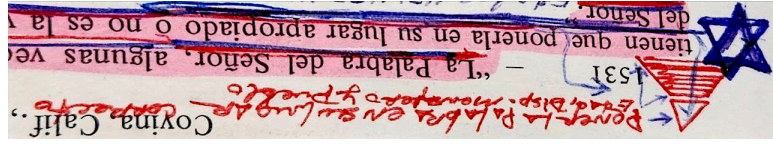 Covina, Calif.,
Poner La Palabra en su lugar correcto
Edad, Disp. Mensajero y Pueblo
1531 – “La Palabra del Señor, algunas vec
tienen que ponerla en su lugar apropiado o no es la
del Señor”